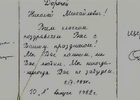 Дорогой
Николай Михайлович!
Всем классом
поздравляем Вас с
Вашим праздником.
Мы Вас помним, мы
Вас любим. Мы никогда-
никогда Вас не забудем.
10, 8 марта 1982г.